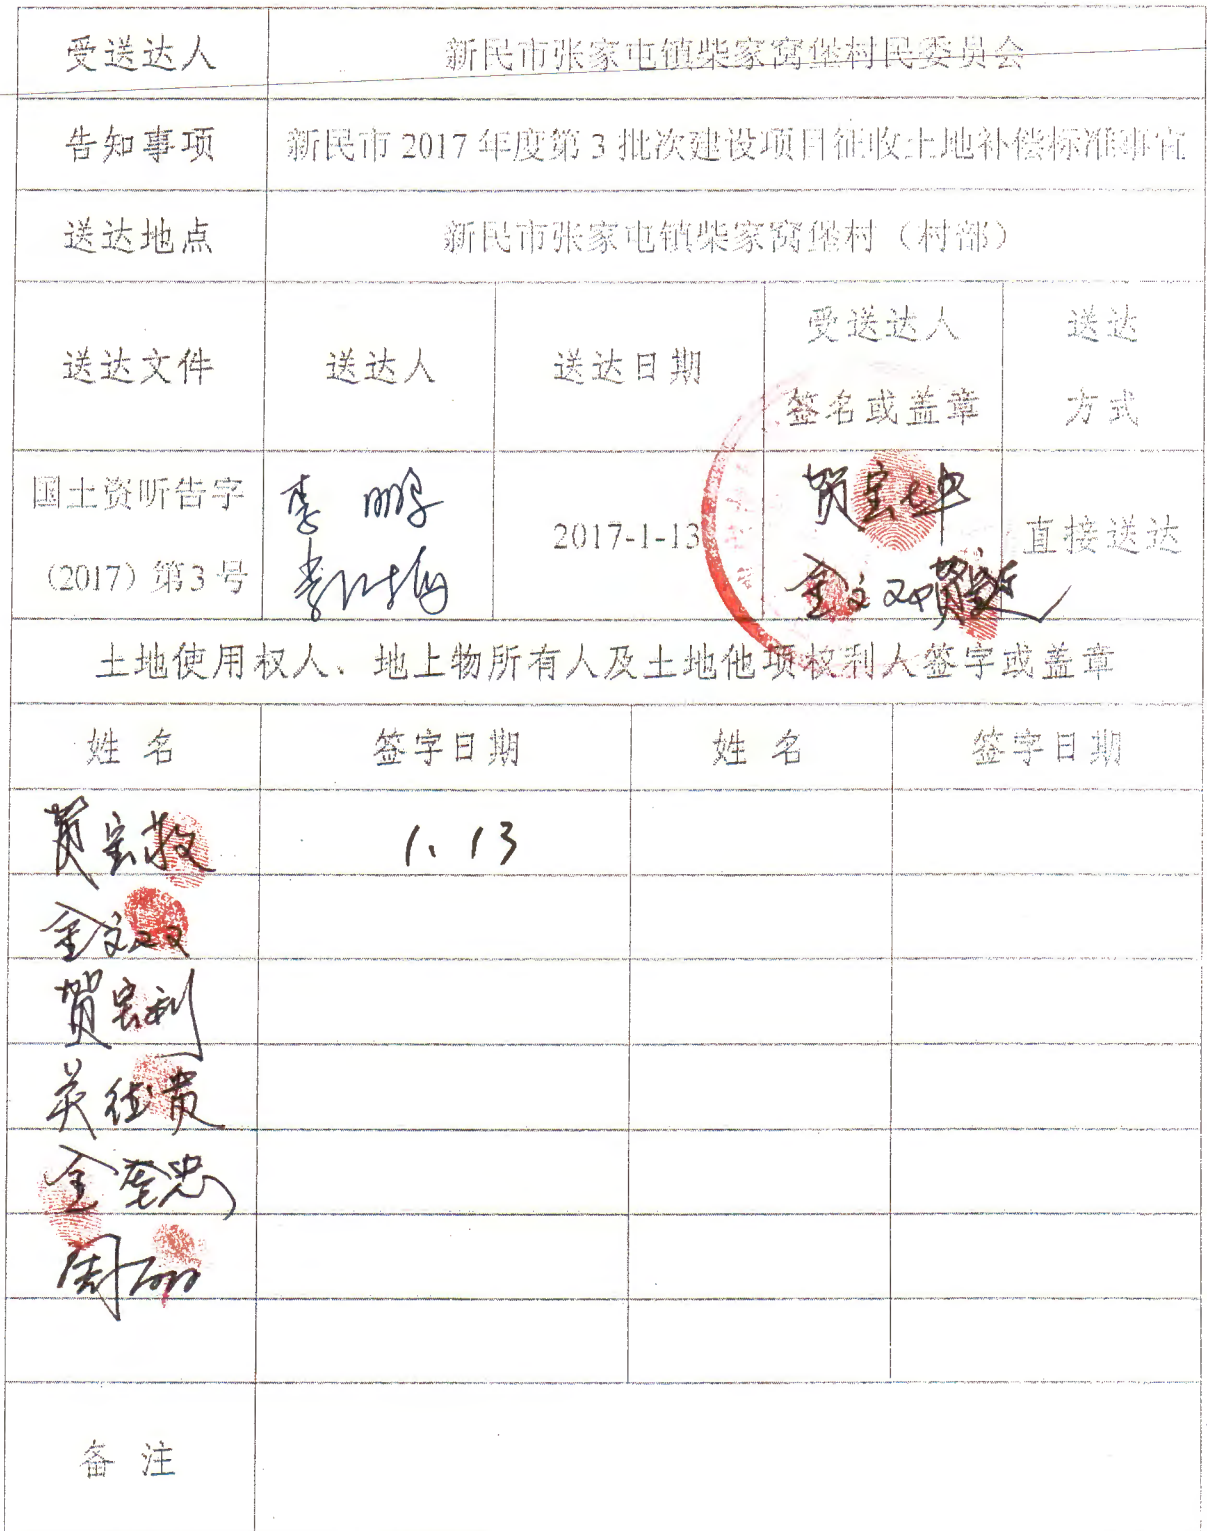 受送达人 新民市张家屯镇柴家窝堡村民委员会
告知事项 新民市 2017 年度第 3 批次建设项目征收土地补偿标准事宜
送达地点 新民市张家屯镇柴家窝堡村（村部）
送达文件 送达人 送达日期 受送达人 签名或盖章 送达 方式
国土资听告字
（2017）第 3 号
李 鹏
2017-1-13
贺宝坤
金文双
直接送达
土地使用权人、地上物所有人及土地他项权利人签字或盖章
姓 名 签字日期 姓 名 签字日期
1. 13
金文双
贺宝利
金奎忠
周丽
备 注